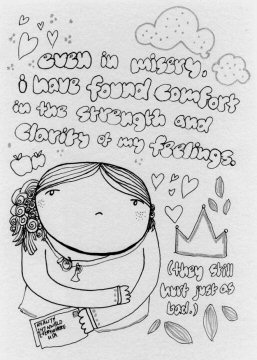 even in misery,
i have found comfort
in the strength and
clarity of my
feelings.
(they still
hurt just as
bad.)